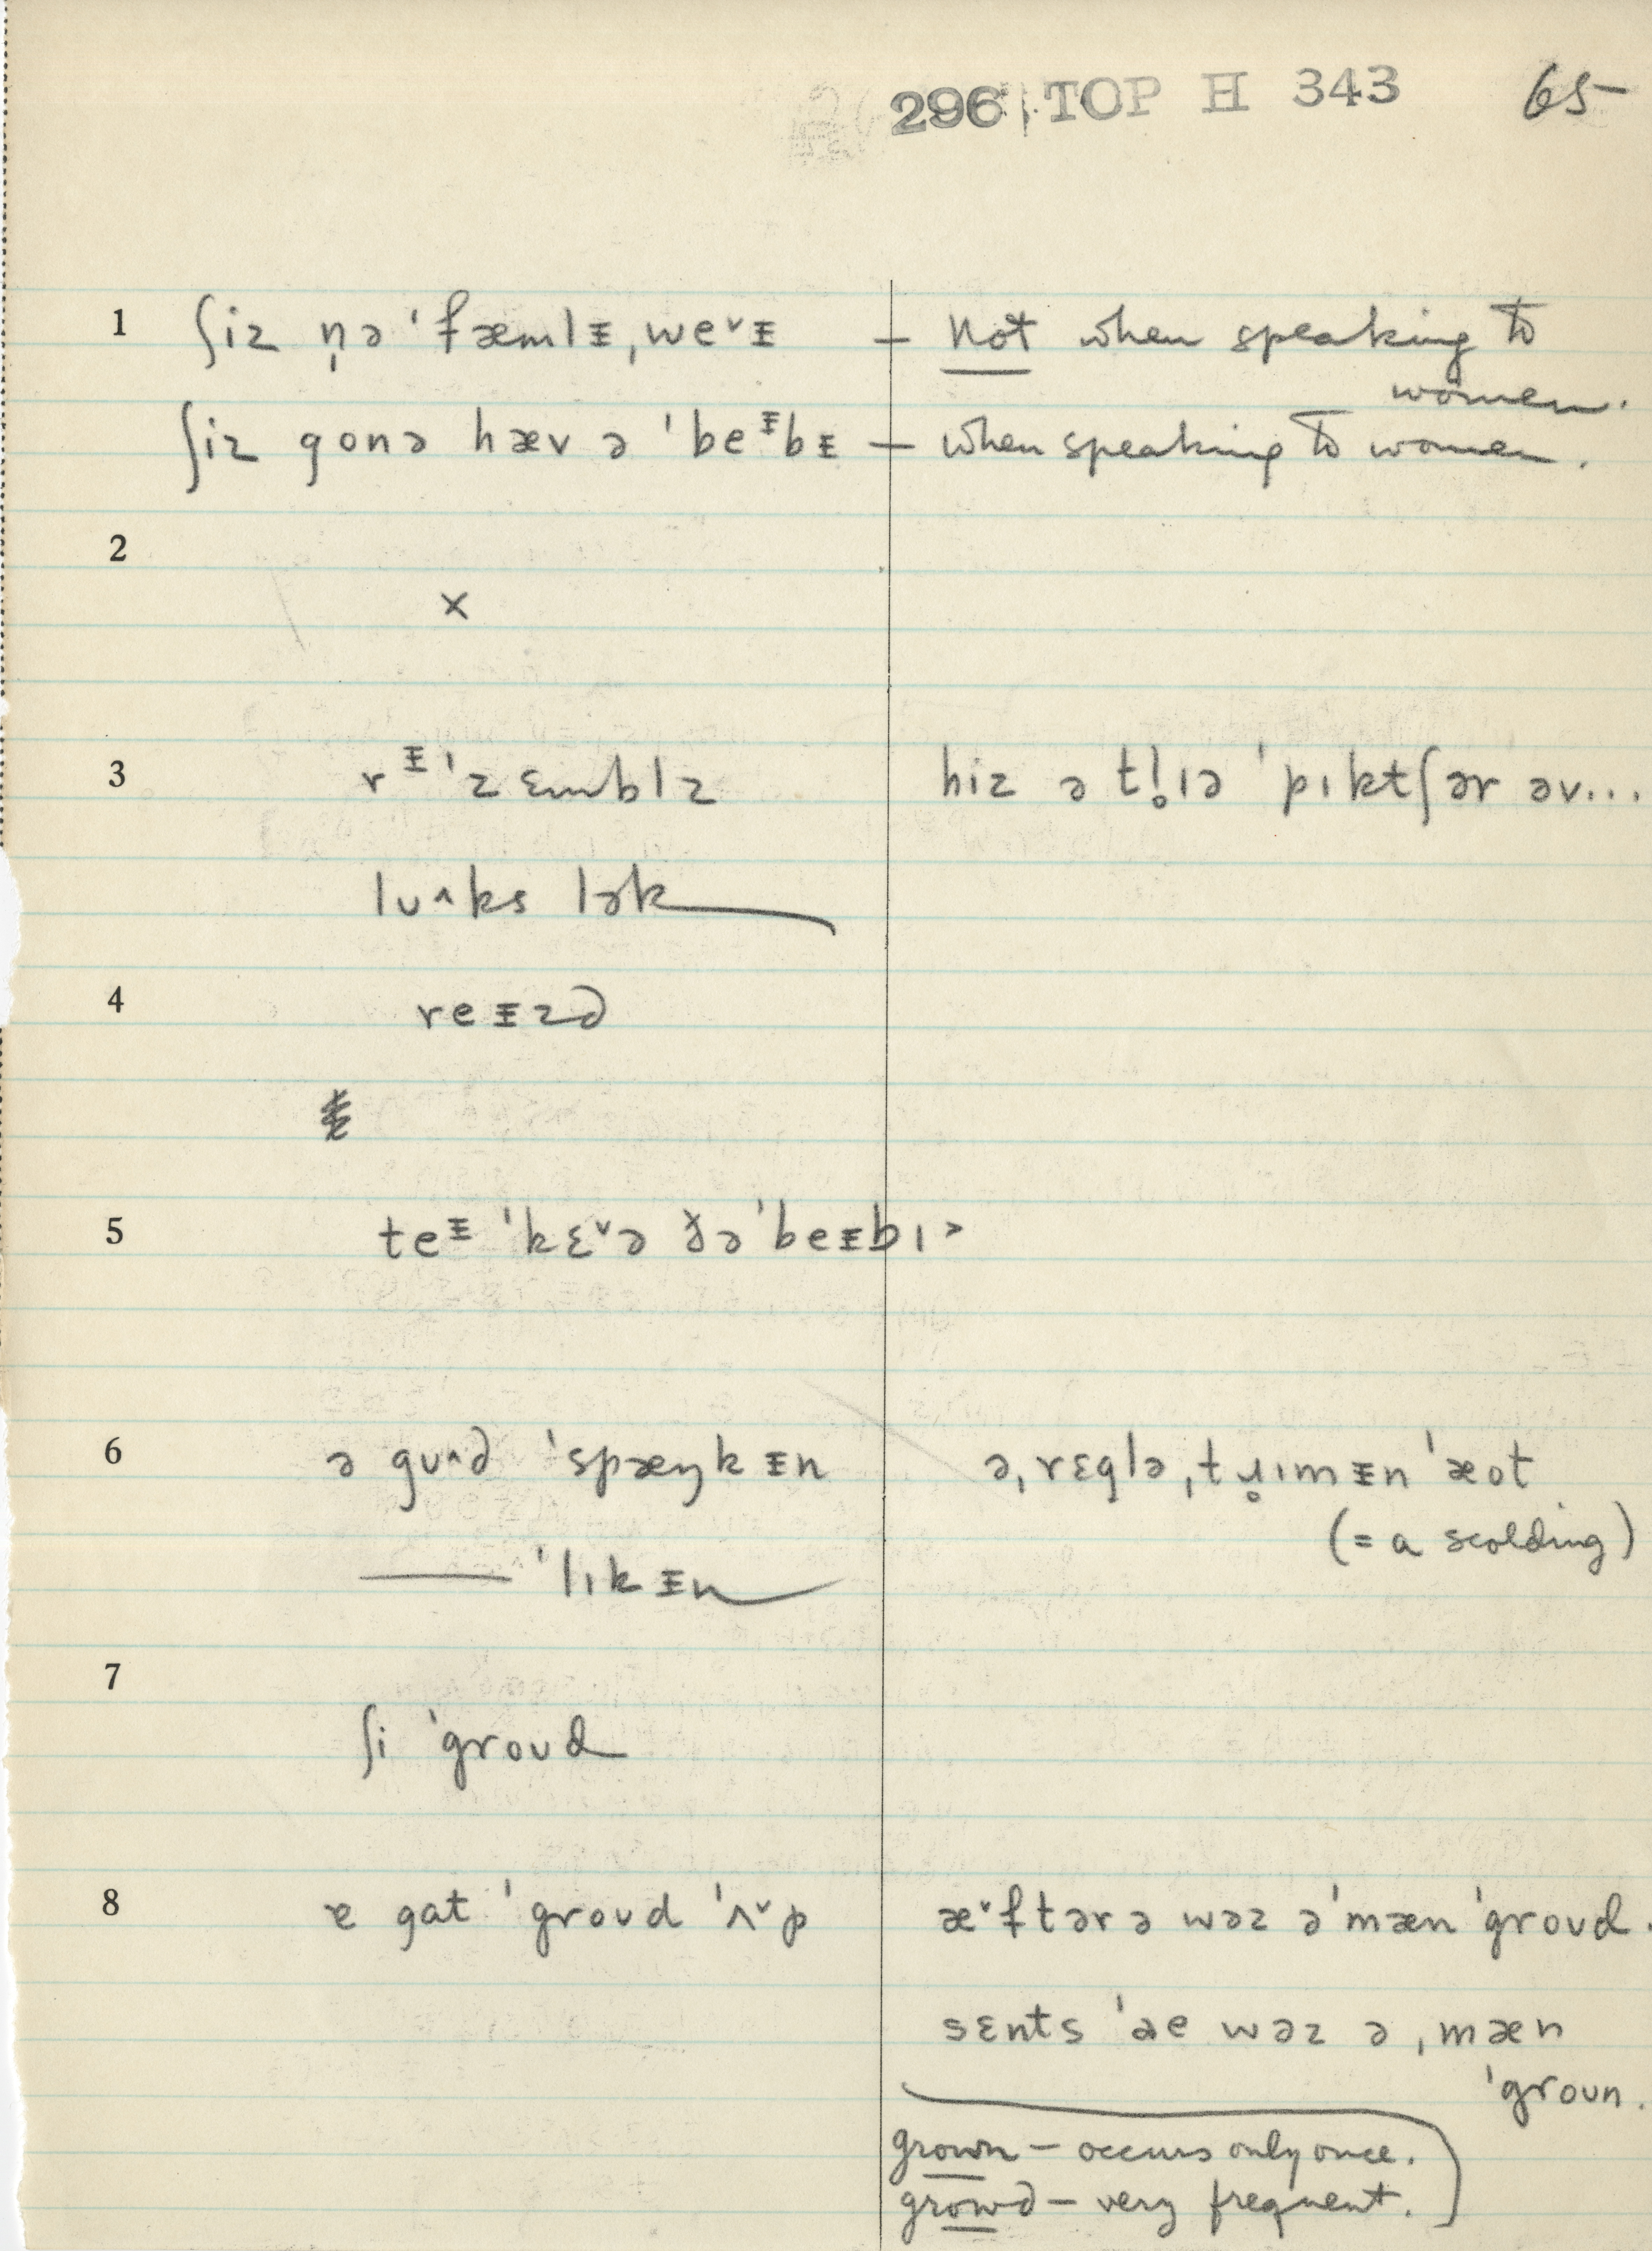 296 TOP H 343 65
1 ʃiz n̩ə ˈfæmlᵻ ˌweˇᵻ — not when speaking to
women.
ʃiz gonə hæv ə ˈbeᵻbᵻ — when speaking to women.
2
×
3 rᵻˈzɛmblz hiz ə tl̥ıə ˈpıktʃər əv...
lʊ^ks lək
4 reᵻzd
5 teᵻ ˈkɛˇə ðəˈbeᵻbı>
6 ə gʊ^d ˈspæŋkᵻn ə ˌrɛglə ˌtɹ̥ımᵻn ˈæot
(= a scolding)
—— ˈlıkᵻn
7
ʃi ˈgroʊd
8 ɐ gat ˈgroʊd ˈʌˇp æˇftər ə wəz ə ˈmæn ˈgroʊd.
sɛnts ˈae wəz ə ˌmæn
ˈgroʊn.
grown — occurs only once.
growd — very frequent.